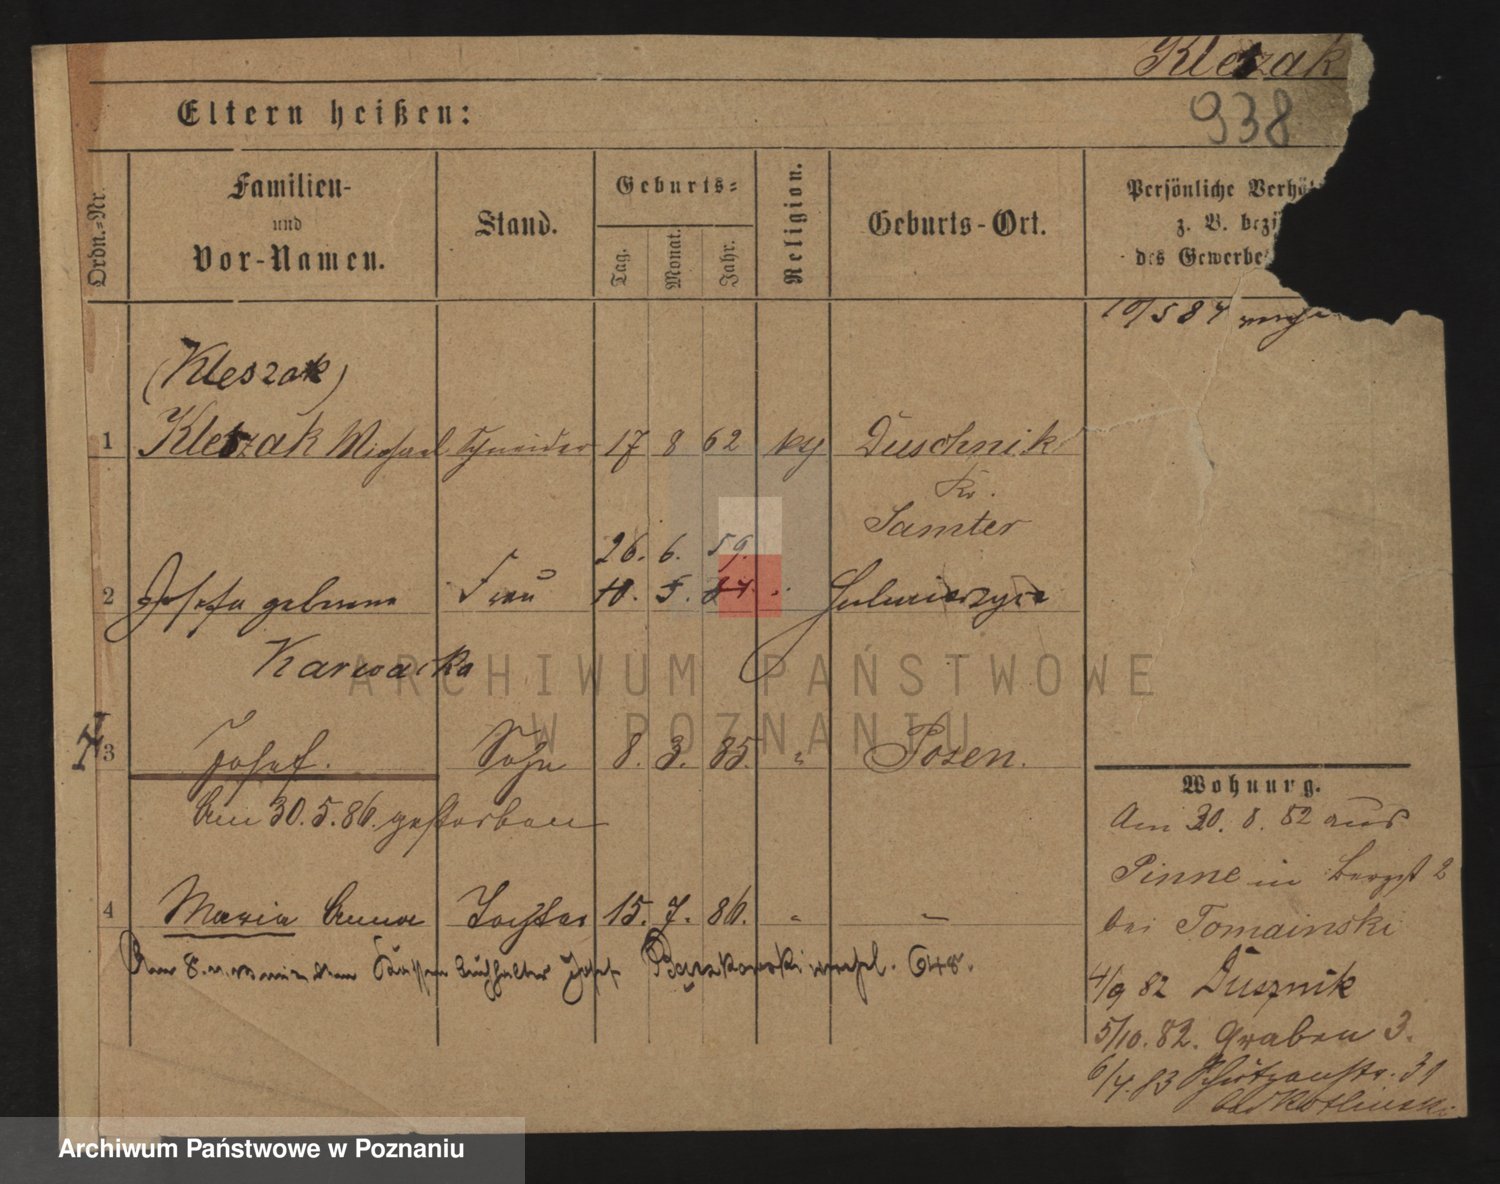 Kletzak
938
Eltern heißen:
Ordn.-Nr.
Familien-
und
Vor-Namen.
Stand.
Geburts-
Tag.
Monat.
Jahr.
Religion.
Geburts-Ort.
Persönliche Verhä
z. B. bezü
des Gewerbe
10/5 87
(Kleszak)
1 Kletzak Michael Schneider 17 8 62 kg Duschnik
Kr.
Samter
26. 6. 59.
2 Josefa geborene Frau 10. 5.
Karwacka
3 Josef. Sohn 8. 3. 85. " Posen.
Am 30.5.86. gestorben
4 Maria Anna Tochter 15. 7. 86. " –
Am 8. Josef 648.
Wohnung.
Am 30. 8. 82 aus
Pinne in Bergst 2
bei Tomainski
4/9 82 Dusznik
5/10. 82. Graben 3.
6/4. 83 Schützenstr. 31
bei Kotlinski
ARCHIWUM PAŃSTWOWE
W POZNANIU
Archiwum Państwowe w Poznaniu